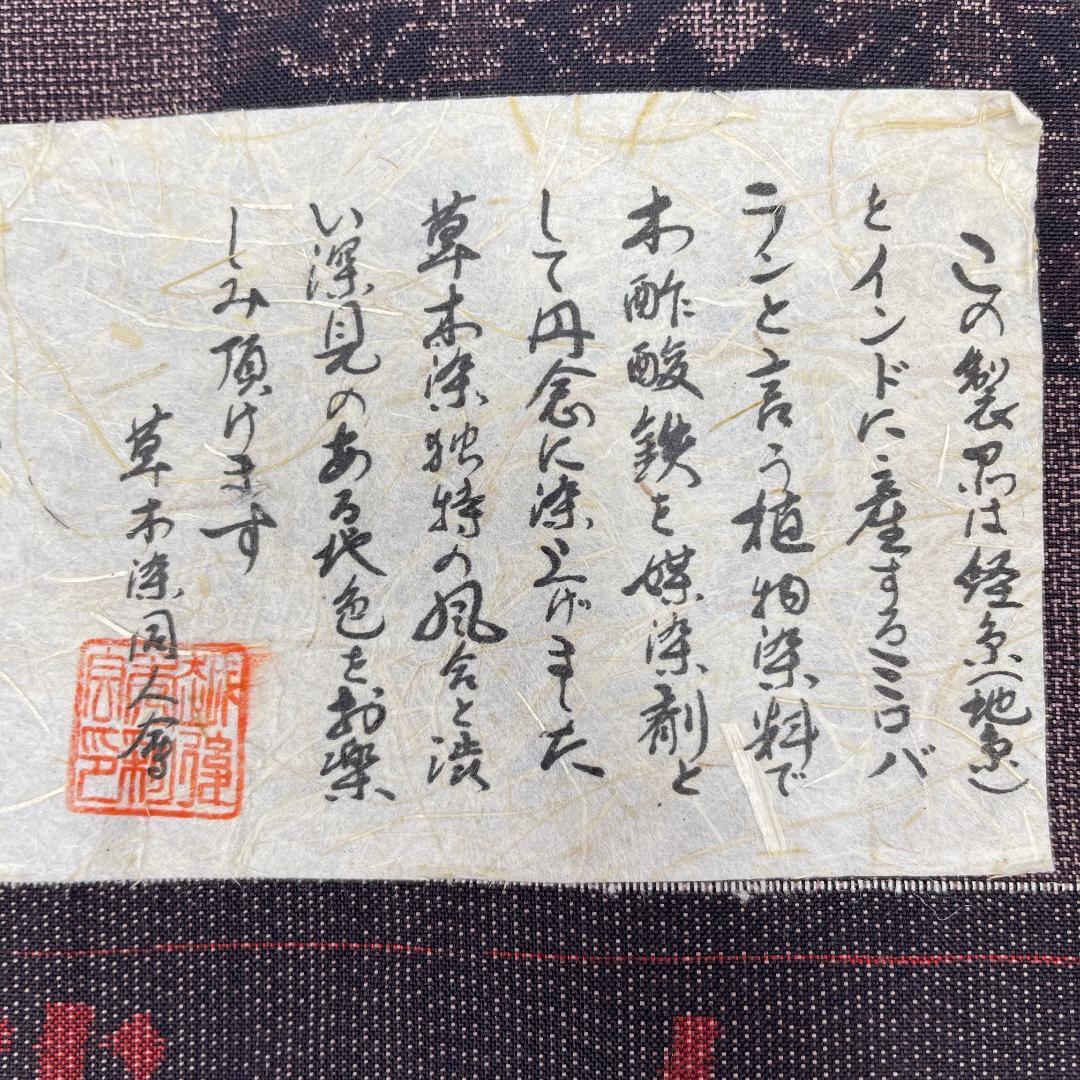 この製品は経糸(地糸)
とインドに産するミロバ
ランと言う植物染料で
木酢酸鉄を媒染剤と
して丹念に染上げました
草木染独特の風合と渋
い深見のある地色をお楽
しみ頂けます
草木染同人會